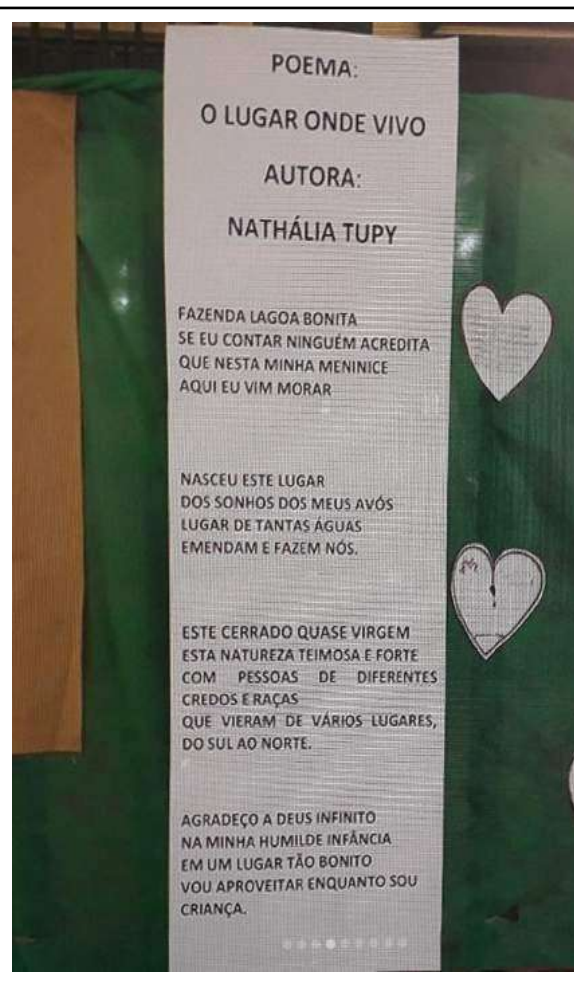 POEMA:
O LUGAR ONDE VIVO
AUTORA:
NATHÁLIA TUPY
FAZENDA LAGOA BONITA
SE EU CONTAR NINGUÉM ACREDITA
QUE NESTA MINHA MENINICE
AQUI EU VIM MORAR
NASCEU ESTE LUGAR
DOS SONHOS DOS MEUS AVÓS
LUGAR DE TANTAS ÁGUAS
EMENDAM E FAZEM NÓS.
ESTE CERRADO QUASE VIRGEM
ESTA NATUREZA TEIMOSA E FORTE
COM PESSOAS DE DIFERENTES
CREDOS E RAÇAS
QUE VIERAM DE VÁRIOS LUGARES,
DO SUL AO NORTE.
AGRADEÇO A DEUS INFINITO
NA MINHA HUMILDE INFÂNCIA
EM UM LUGAR TÃO BONITO
VOU APROVEITAR ENQUANTO SOU
CRIANÇA.